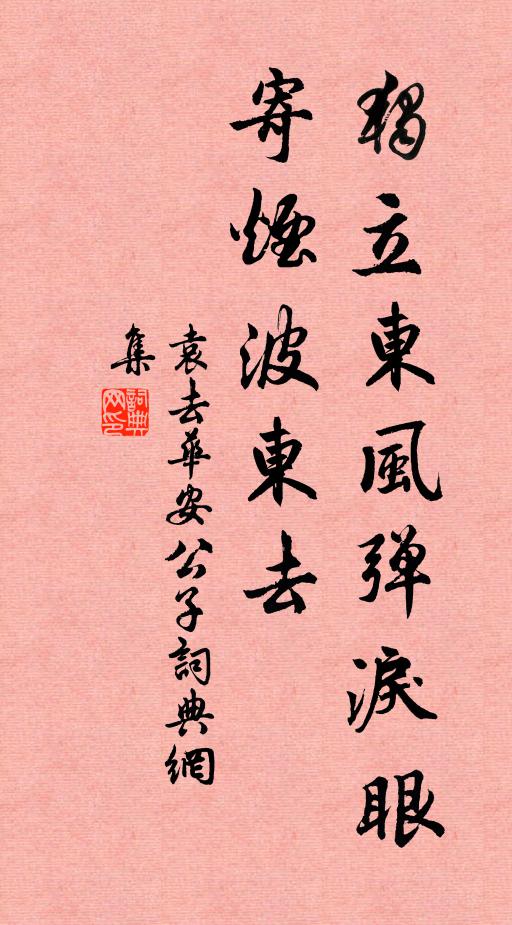 獨立東風彈淚眼
寄煙波東去
袁去華安公子詞典網
集
詞典
网印